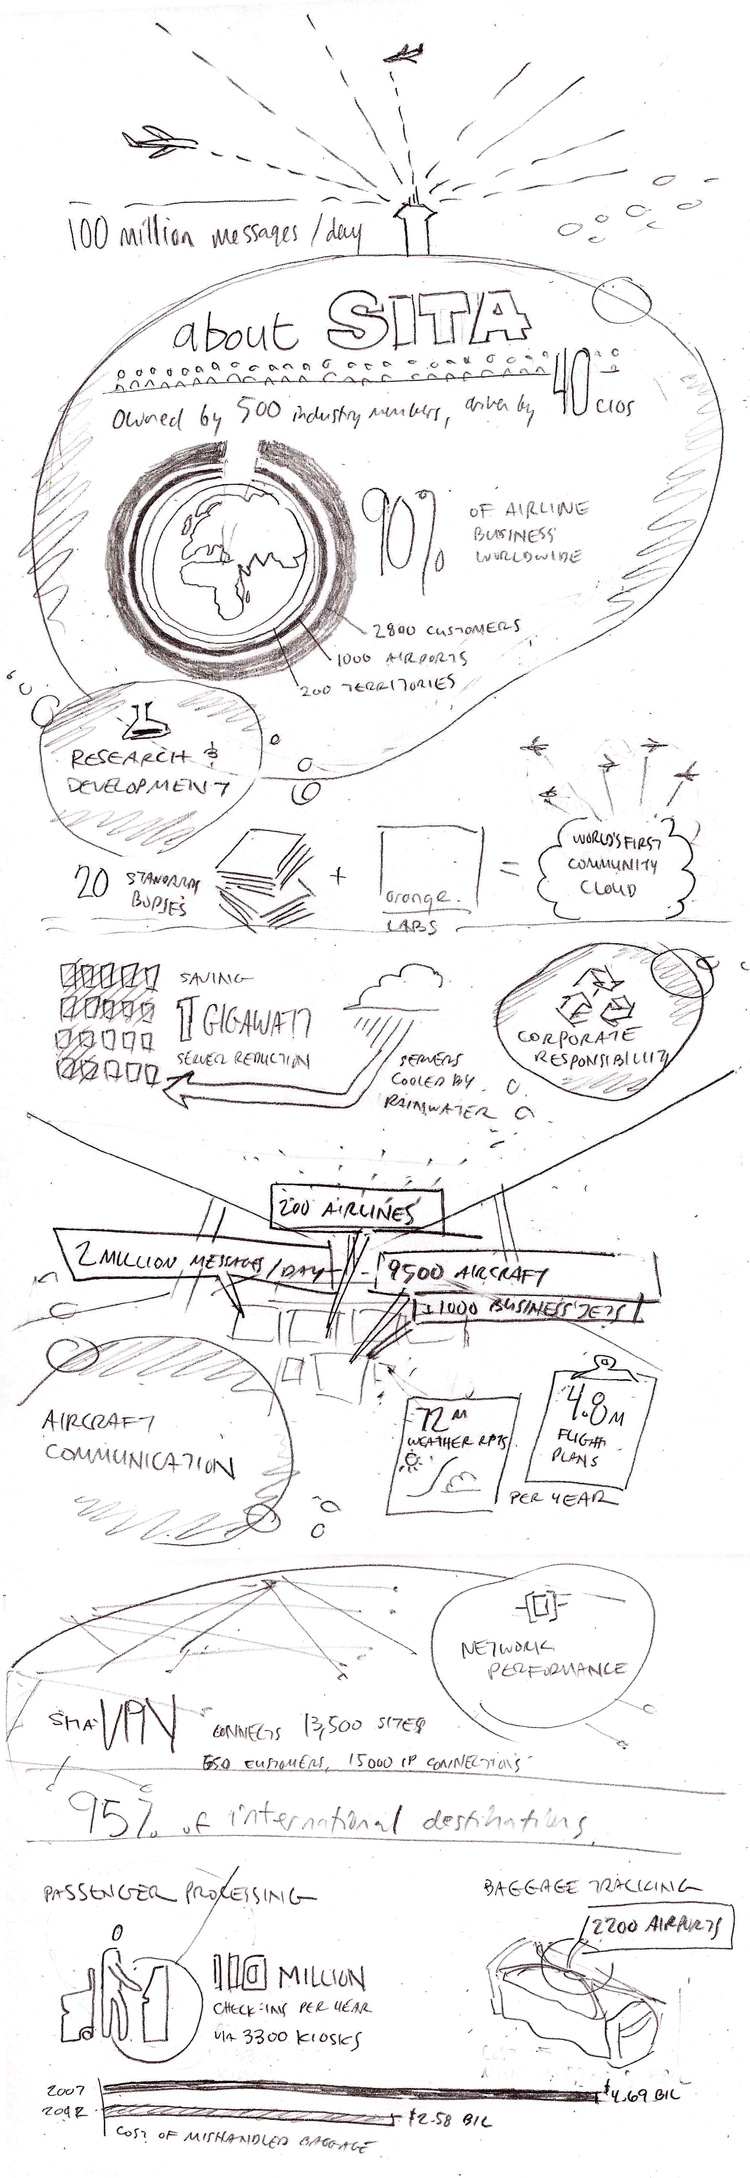 100 million messages / day
about SITA
Owned by 500 industry members, driven by 40 CIOS
90% OF AIRLINE
BUSINESS
WORLDWIDE
2800 CUSTOMERS
1000 AIRPORTS
200 TERRITORIES
RESEARCH &
DEVELOPMENT
20 STANDARDS
BODIES
+
orange
LABS
=
WORLD'S FIRST
COMMUNITY
CLOUD
SAVING
1 GIGAWATT
SERVER REDUCTION
SERVERS
COOLED BY
RAINWATER
CORPORATE
RESPONSIBILITY
200 AIRLINES
2 MILLION MESSAGES / DAY
9500 AIRCRAFT
+1000 BUSINESS JETS
AIRCRAFT
COMMUNICATION
72M
WEATHER RPTS
4.8M
FLIGHT
PLANS
PER YEAR
NETWORK
PERFORMANCE
SITA VPN CONNECTS 13,500 SITES
650 CUSTOMERS, 15000 IP CONNECTIONS
95% of international destinations
PASSENGER PROCESSING
110 MILLION
CHECK-INS PER YEAR
VIA 3300 KIOSKS
BAGGAGE TRACKING
2200 AIRPORTS
2007 $4.69 BIL
$2.58 BIL
COST OF MISHANDLED BAGGAGE